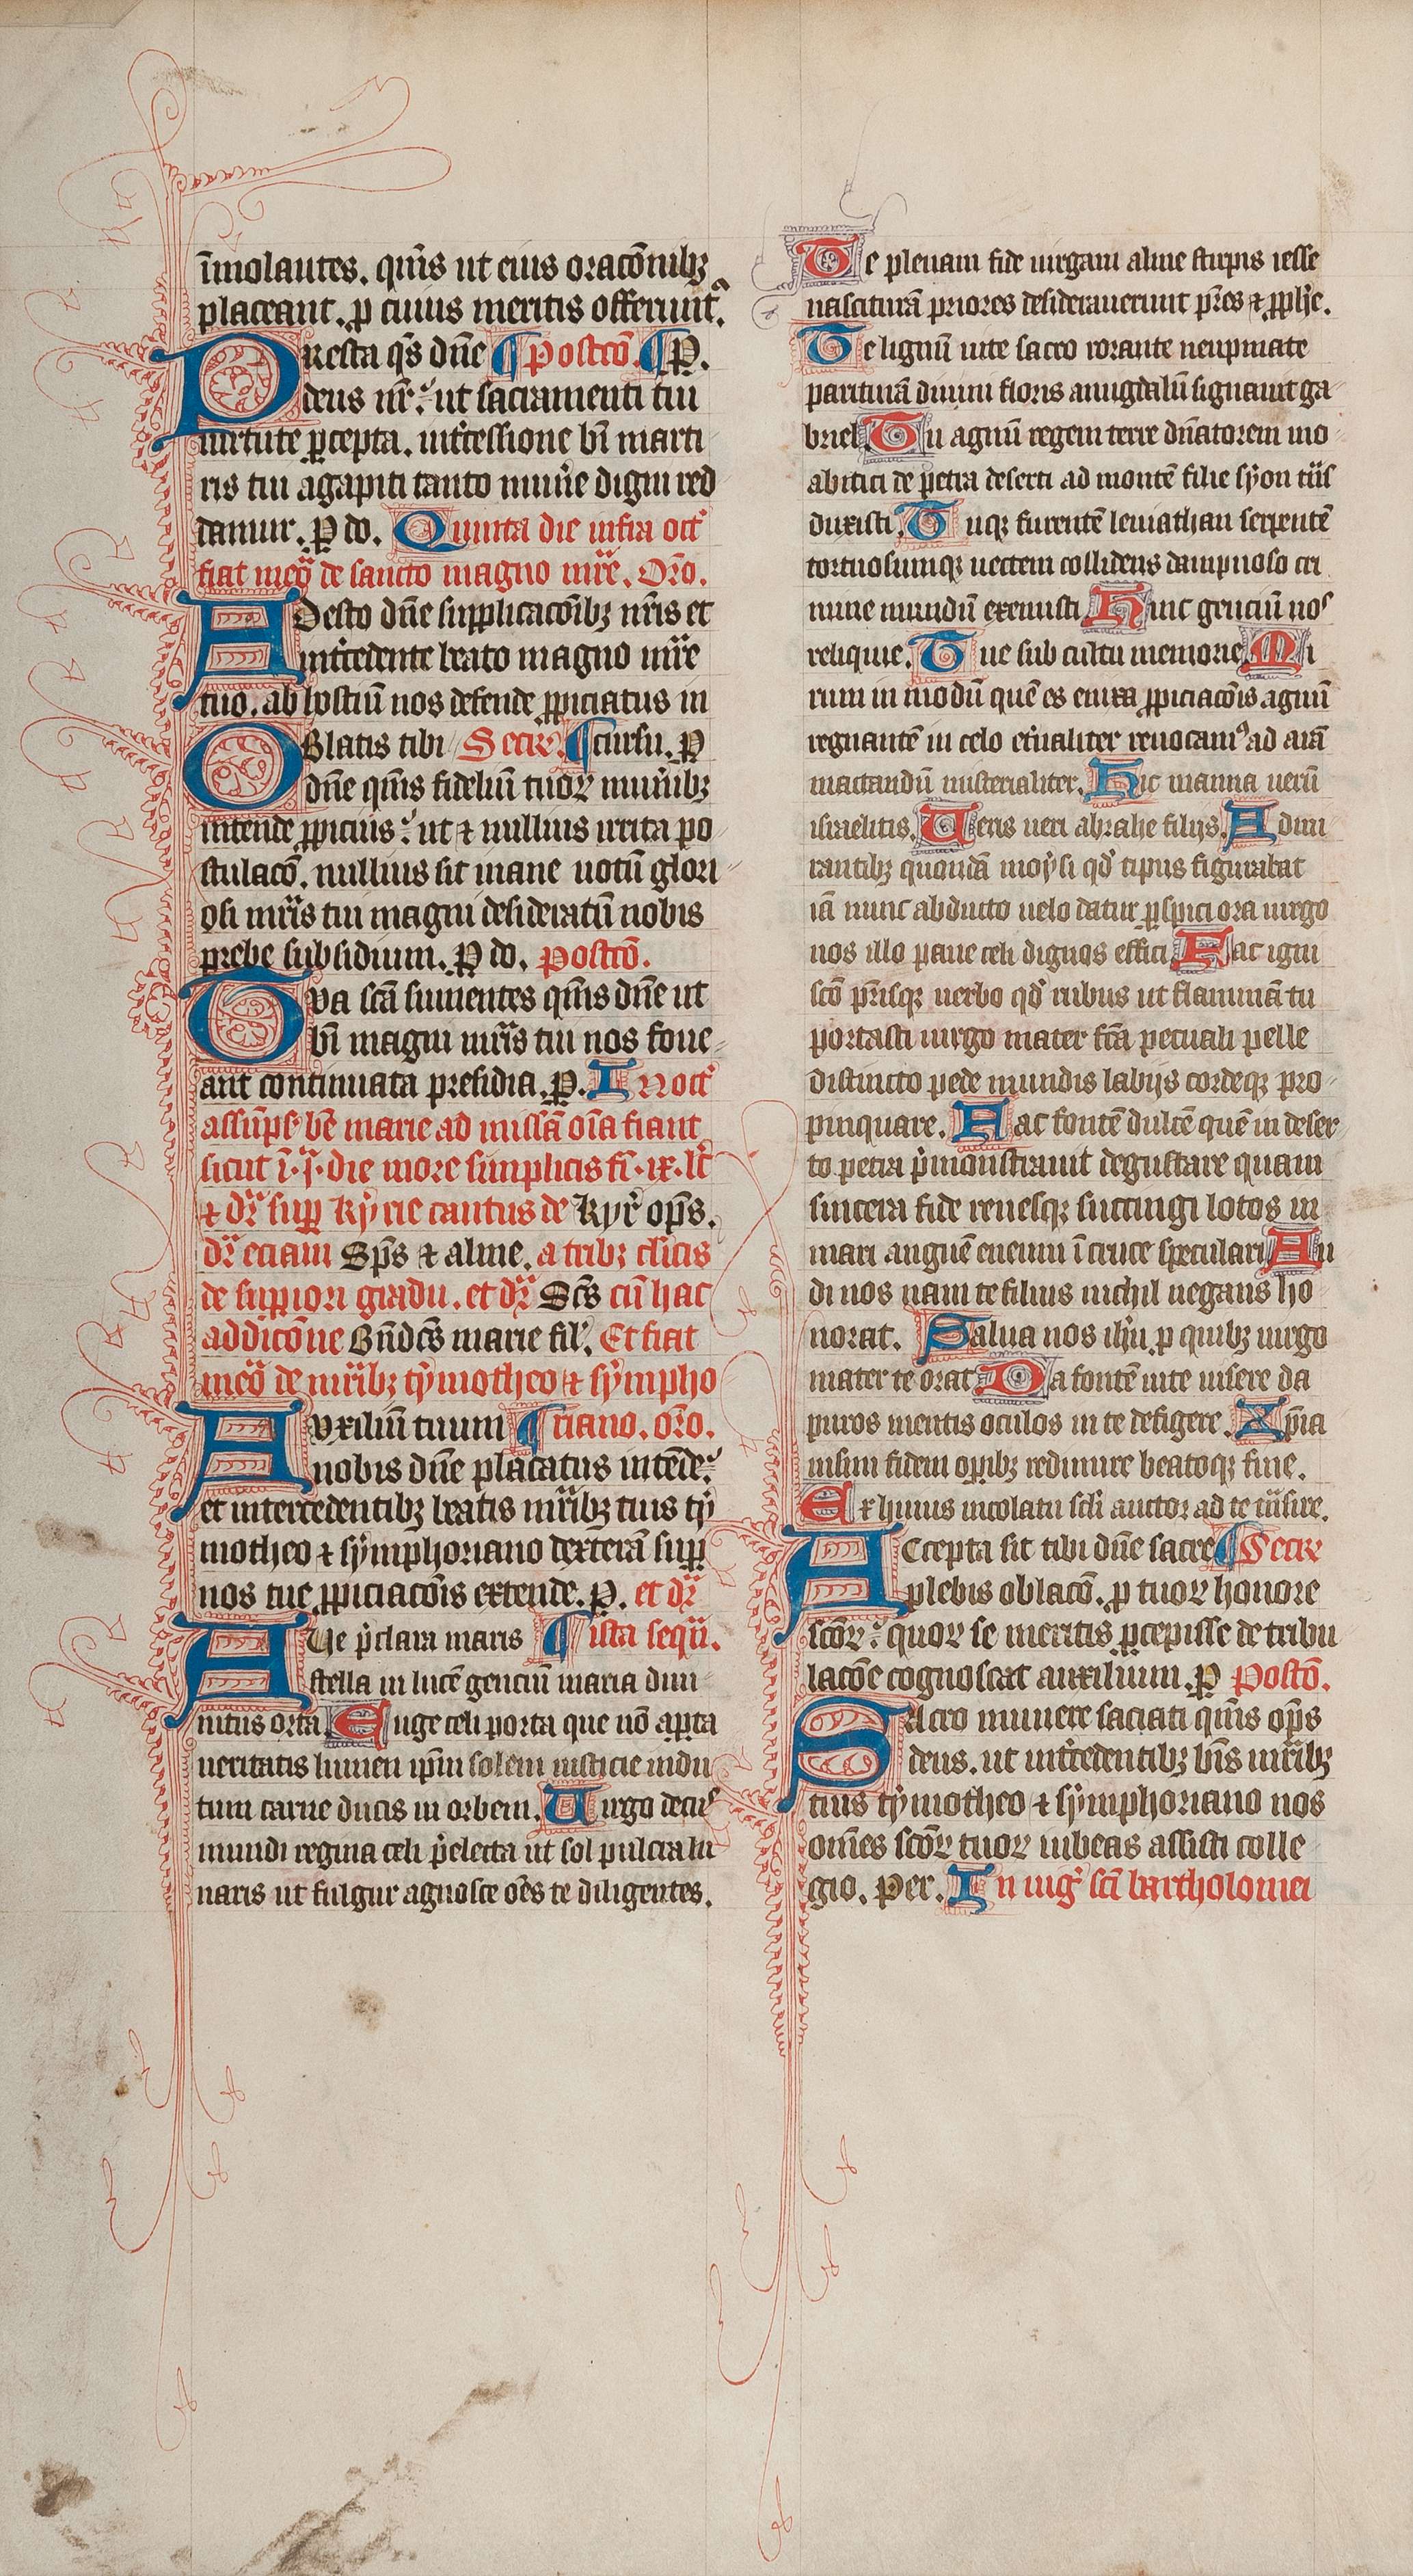 īmolantes. quīs ut eius oracōnibꝫ
placeant. ꝑ cuius meritis offerunt᷑.
Presta qs̄ dn̄e ¶ Postcō. ¶ P.
deus nr̄. ut sacramenti tui
uirtute ꝑcepta. int̄cessione bī marti
ris tui agapiti tanto mun̄e digni red
damur. P do. Quinta die infra oct̄
fiat meō de sancto magno mr̄e. Or̄o.
Adesto dn̄e supplicacōibꝫ nr̄is et
int̄cedente beato magno mr̄e
tuo. ab hostiū nos defende ꝓpiciatus in
Oblatis tibi Secr̄. ¶ cursu. P
dn̄e qīs fideliū tuoꝝ munībꝫ
intende ꝓpicius. ut ⁊ nullius irrita po
stulacō. nullius sit inane uotū glori
osi mr̄is tui magni desideratū nobis
prebe subsidium. P do. postcō.
Tva scā sumentes qīs dn̄e ut
bī magni mr̄is tui nos foue
ant continuata presidia. P. In oct̄
assūpc̄ bē marie ad missā oīa fiant
sicut ī. ꝗ. die more simplicis fī. ix. lc̄
⁊ dr̄ supp kyrie cantus de kyr̄ ops̄.
dr̄ eciam Sps̄ ⁊ alme. a tribꝫ cl̄icis
de suppiori gradu. et dr̄ Scs̄ cū hac
addicōne Bn̄dcs̄ marie fil᷑. Et fiat
meō de mr̄ibꝫ tymotheo ⁊ sympho
Avxiliū tuum ¶ riano. or̄o.
nobis dn̄e placatus intēde.
et intercedentibꝫ beatis mr̄ibꝫ tuis ty
motheo ⁊ symphoriano dexterā supp
nos tue ꝓpiciacōis extende. P. et dr̄
Ave p̄clara maris ¶ ista seqū.
stella in lucē genciū maria diui
nitus orta Euge celi porta que nō apta
ueritatis lumen ip̄m solem iusticie indu
tum carne ducis in orbem. Virgo decus
mundi regina celi p̄electa ut sol pulcra lu
naris ut fulgur agnosce oēs te diligentes.
Te plenam fide uirgam alme stirpis iesse
nascituram priores desiderauerunt pr̄es ⁊ ꝓph̄e.
Te lignū uite sacro rorante neupmate
parituram diuini floris amigdalū signauit ga
briel. Tu agnū regem terre dn̄atorem mo
abitici de petra deserti ad montē filie syon tn̄s
duxisti. Tuqꝫ furentē leuiathan serpentē
tortuosumqꝫ uectem collidens dampnoso cri
mine mundū exemisti Hinc genciū nos
reliquie. Tue sub cultu memorie Mi
rum in modū quē es enixa ꝓpiciacōis agnū
regnantē in celo et̄naliter reuocam⁹ ad arā
mactandū misterialiter. Hic manna uerū
israelitis. Veris ueri abrahe filijs. Admi
rantibꝫ quondā moysi qd̄ tipus figurabat
iā nunc abducto uelo datur ꝑspici ora uirgo
nos illo pane celi dignos effici Fac igni
scō pr̄isqꝫ uerbo qd̄ rubus ut flammā tu
portasti uirgo mater fc̄a pecuali pelle
distincto pede mundis labijs cordeqꝫ pro
pinquare. Fac fontē dulcē quē in deser
to petra p̄monstrauit degustare quam
sincera fide renesqꝫ succingi lotos in
mari anguē eneum ī cruce speculari Au
di nos nam te filius nichil negans ho
norat. Salua nos ihū. ꝑ quibꝫ uirgo
mater te orat Da fontē uite uisere da
puros mentis oculos in te defigere. Xp̄ia
nisim fidem opibꝫ redimire beatoqꝫ fine.
Ex huius incolatu scl̄i auctor ad te tn̄sire.
Accepta sit tibi dn̄e sacre ¶ Secr̄
plebis oblacō. ꝑ tuoꝝ honore
scōꝝ. quoꝝ se meritis ꝑcepisse de tribu
lacōe cognoscat auxilium. P Postcō.
Sacro munere saciati qīs ops̄
deus. ut int̄cedentibꝫ bīs mr̄ibꝫ
tuis tymotheo ⁊ symphoriano nos
om̄es scōꝝ tuoꝝ iubeas assisti colle
gio. Per. In uig᷑ sc̄i bartholomei